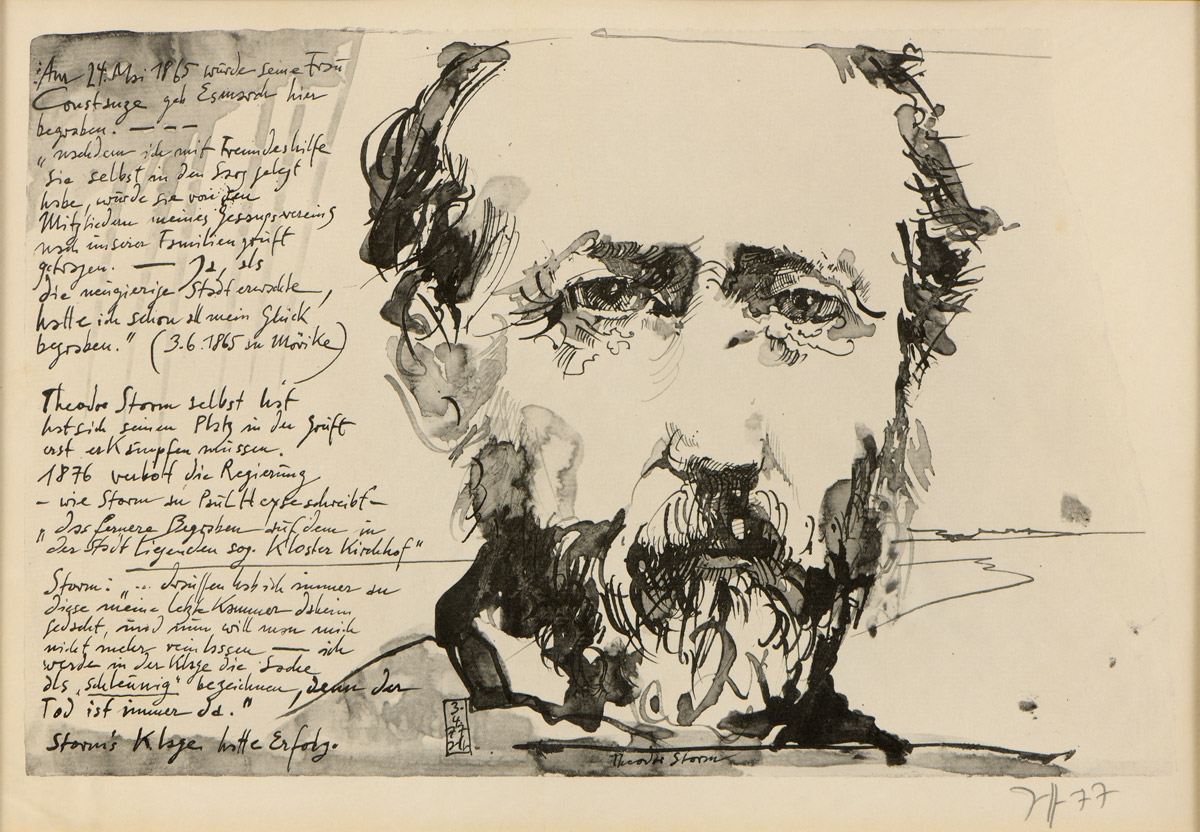 Am 24. Mai 1865 wurde seine Frau
Constanze geb Esmarch hier
begraben. — — —
„nachdem ich mit Freundeshilfe
sie selbst in den Sarg gelegt
habe, wurde sie von den
Mitgliedern meines Gesangvereins
nach unserer Familiengruft
getragen. — Ja als
die neugierige Stadt erwachte,
hatte ich schon all mein Glück
begraben." (3.6.1865 an Mörike)
Theodor Storm selbst hat
hat sich seinen Platz in der Gruft
erst erkämpfen müssen.
1876 verbot die Regierung
– wie Storm an Paul Heyse schreibt –
„das fernere Begraben auf dem in
der Stadt liegenden sog. Kloster Kirchhof"
Storm: „... draußen hab ich immer an
diese meine letzte Kammer daheim
gedacht, und nun will man mich
nicht mehr reinlassen — ich
werde in der Klage die Sache
als „schleunig" bezeichnen, denn der
Tod ist immer da."
Storm's Klage hatte Erfolg.
3.
4.
77
Theodor Storm
77